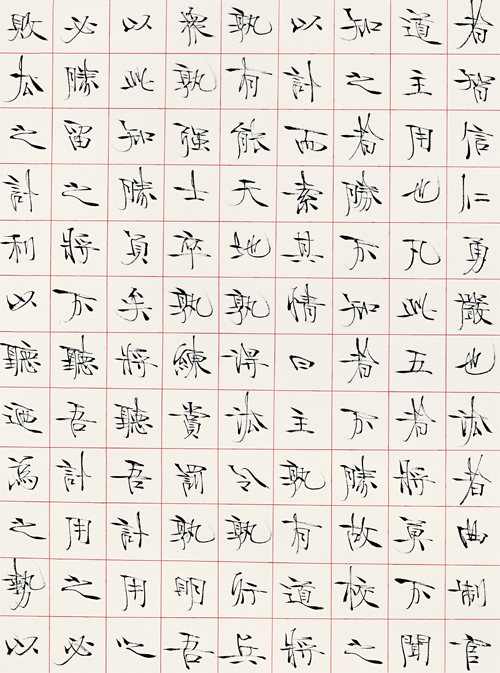 者智信仁勇嚴也法者曲制官
道主用也凡此五者將莫不聞
知之者勝不知者不勝故校之
以計而索其情曰主孰有道將
孰有能天地孰得法令孰行兵
衆孰強士卒孰練賞罰孰明吾
以此知勝負矣將聽吾計用之
必勝留之將不聽吾計用之必
敗去之計利以聽迺為之勢以